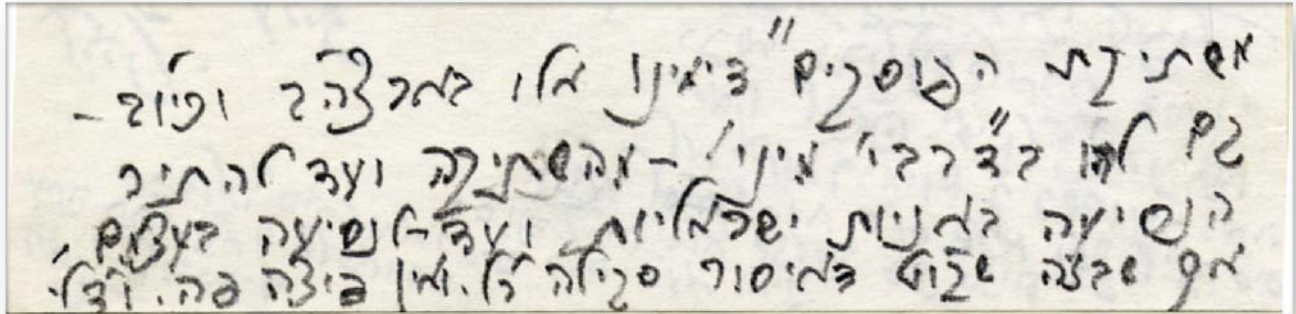 משתיקת הפוסקים" דימינו אלו בארצה"ב וכיוב -
גם להו ב"דרבי' מיני' - מהשתיקה ועד להתיר
הנסיעה באניות ישראליות ועד-לנסיעה בעצמם,
אף שבזה שקוט דאיסור סקילה ר"ל. ואין פוצה פה. וד"ל.